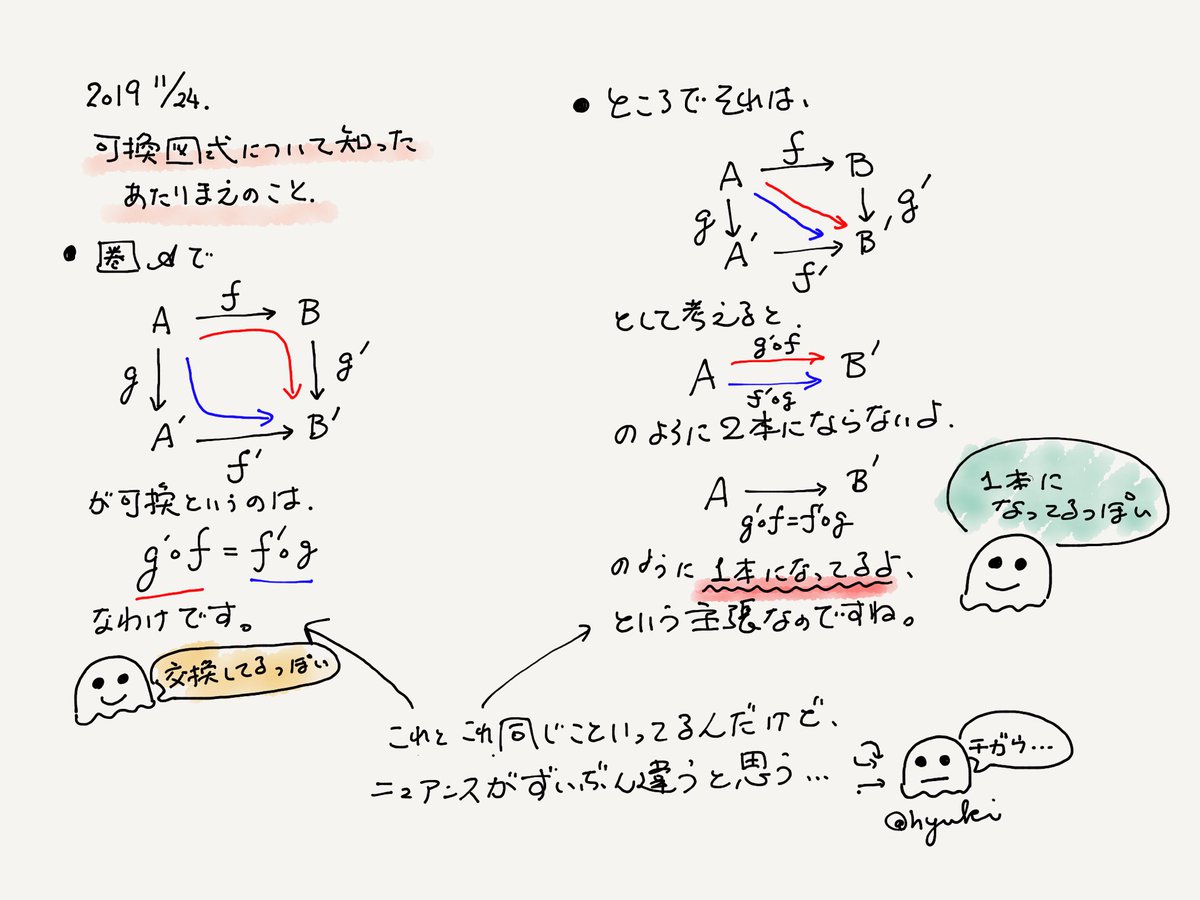 2019 11/24.
可換図式について知った
あたりまえのこと.
● 圏 𝒜で
A f B
g g′
A′ f′ B′
が可換というのは.
g′∘f = f′∘g
なわけです。
交換してるっぽい
● ところでそれは、
A f B
g g′
A′ f′ B′
として考えると.
g′∘f
A B′
f′∘g
のように2本にならないよ.
A B′
g′∘f=f′∘g
のように1本になってるよ、
という主張なのですね。
1本に
なってるっぽい
これと これ同じこといってるんだけど、
ニュアンスがずいぶん違うと思う...
チガウ...
@hyuki